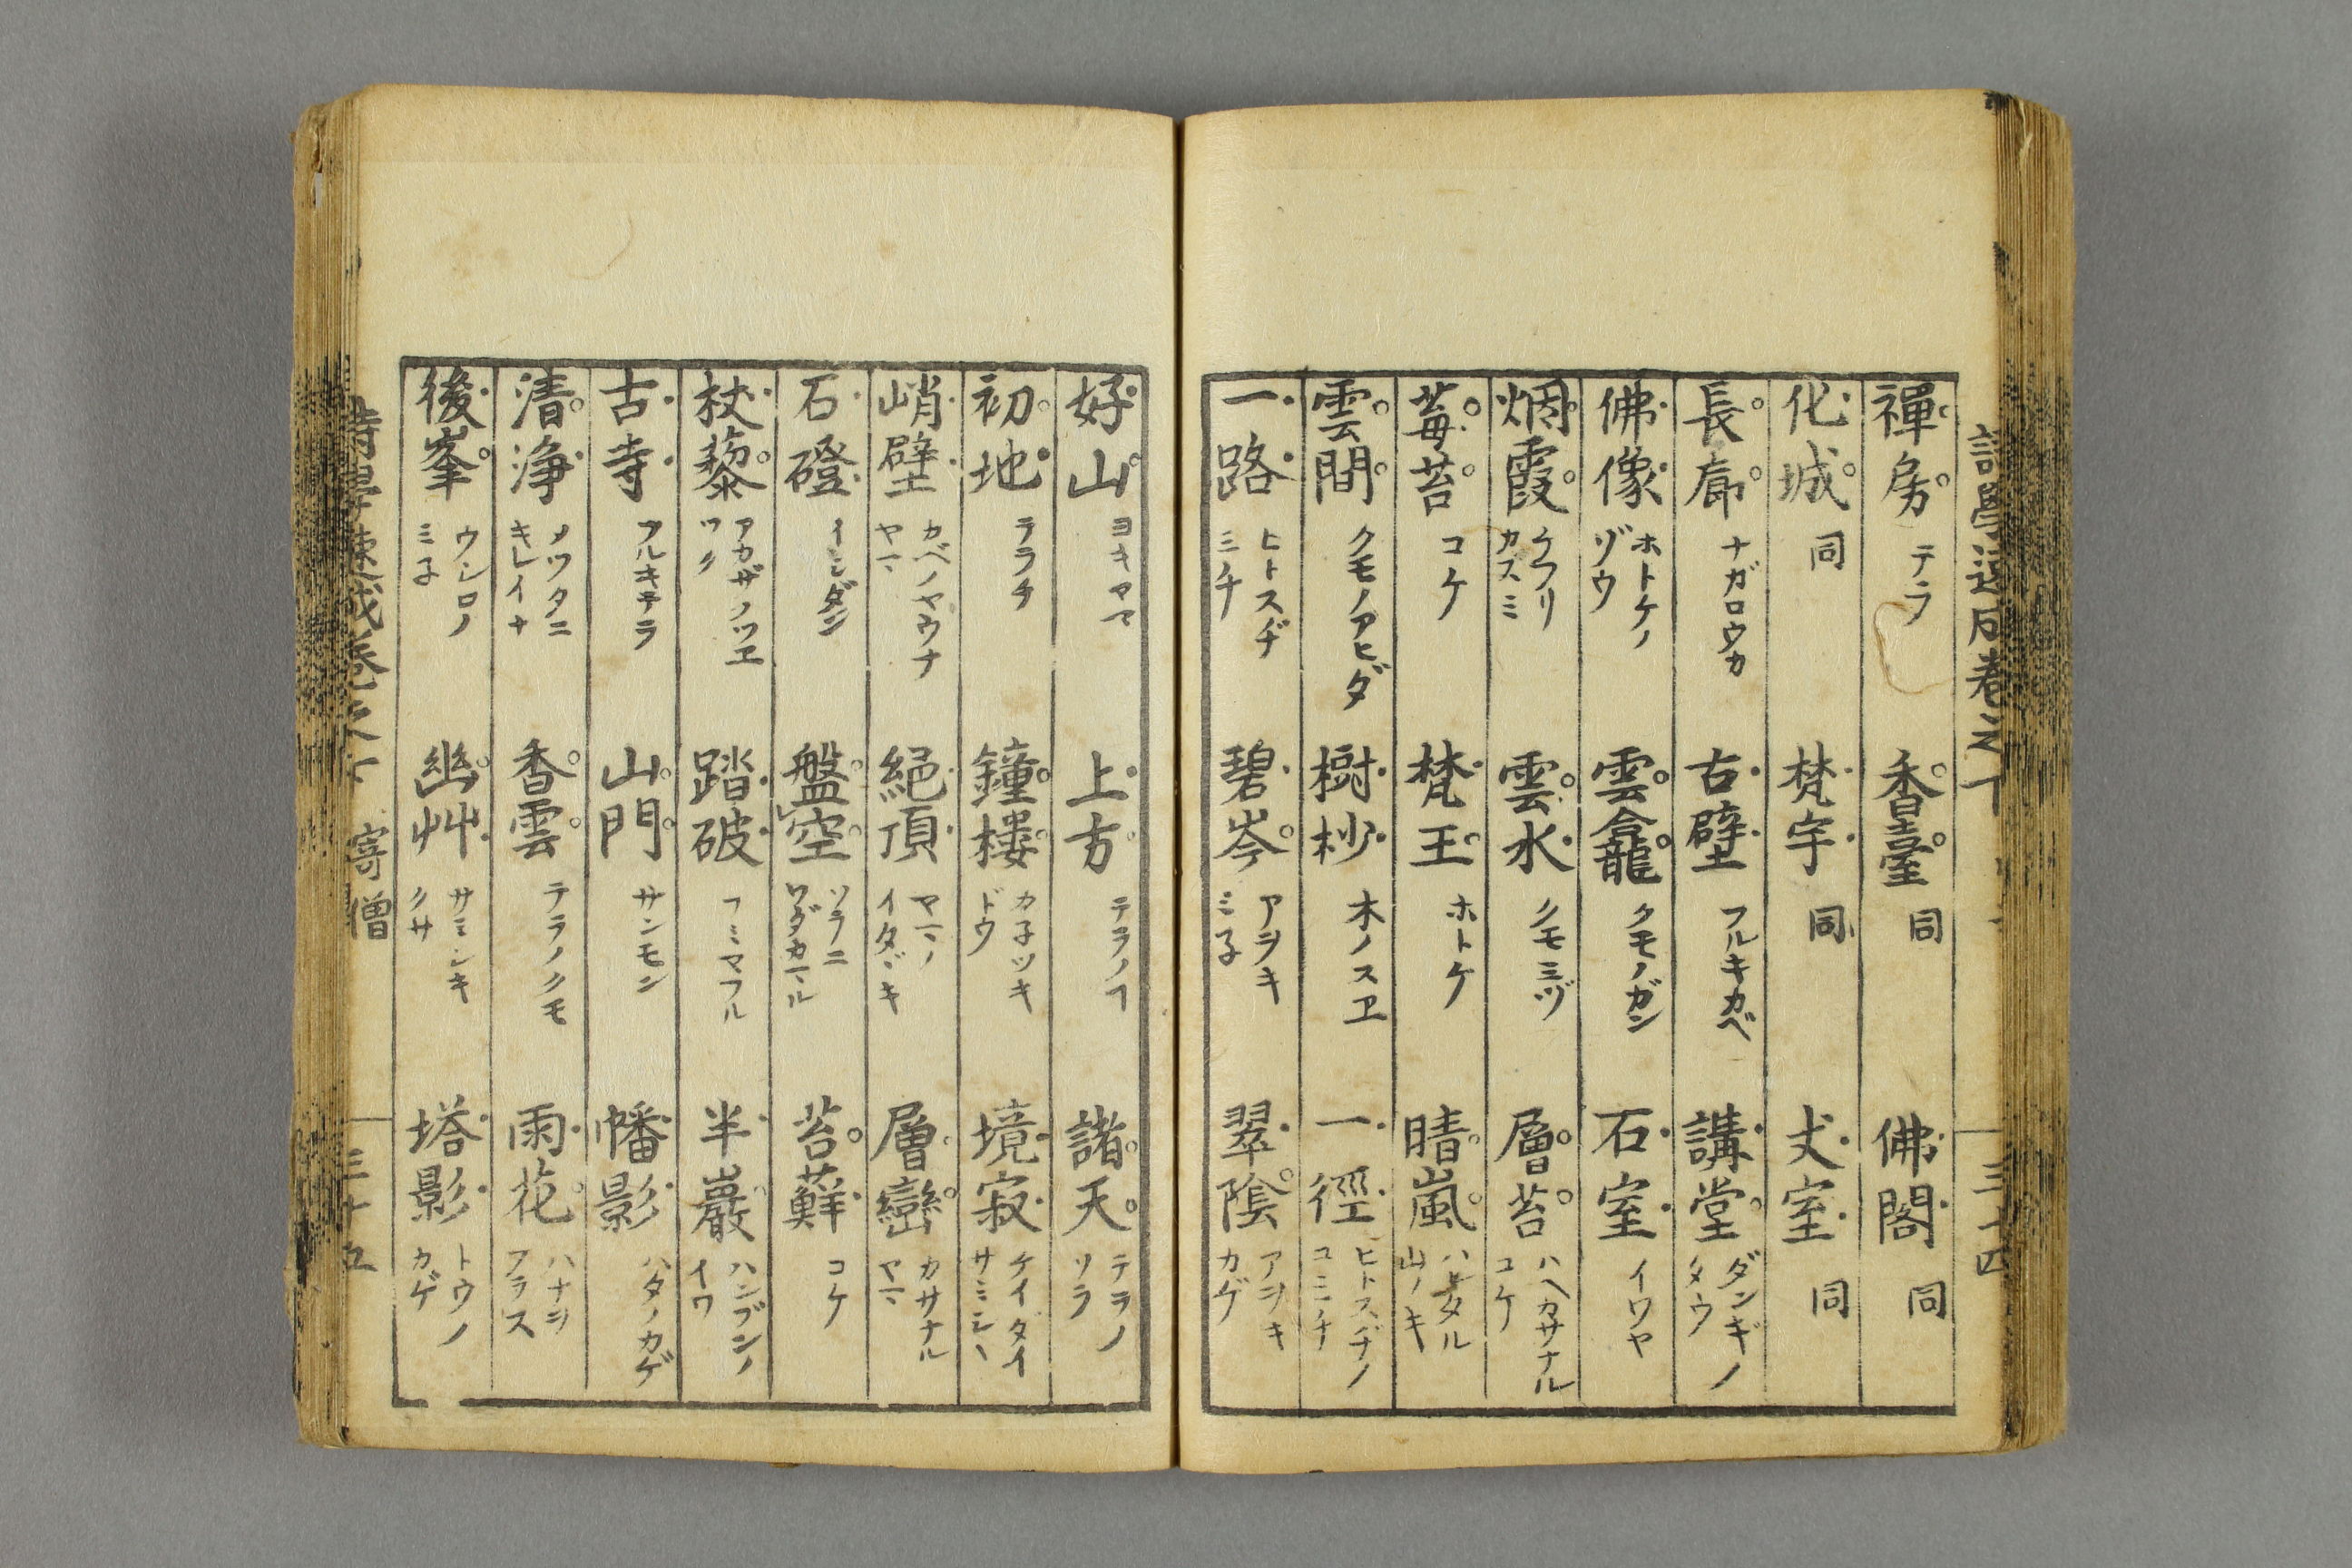 詩學速成卷之下
三十四
禪房 テラ 香臺 同 佛閣 同
化城 同 梵宇 同 丈室 同
長廊 ナガロウカ 古壁 フルキカベ 講堂 ダンギノタウ
佛像 ホトケノゾウ 雲龕 クモノガン 石室 イワヤ
烟霞 ケフリカスミ 雲水 クモミヅ 層苔 ハヘカサナルコケ
莓苔 コケ 梵王 ホトケ 晴嵐 ハレタル山ノキ
雲間 クモノアヒダ 樹杪 木ノスヱ 一徑 ヒトスヂノコミチ
一路 ヒトスヂミチ 碧岑 アヲキミ子 翠陰 アヲキカゲ
好山 ヨキヤマ 上方 テラノ 諸天 テラノソラ
初地 テラチ 鐘樓 カ子ツキドウ 境寂 ケイダイサミシヽ
峭壁 カベノヤウナヤマ 絕頂 ヤマノイタヾキ 層巒 カサナルヤマ
石磴 イシダン 盤空 ソラニワダカマル 苔蘚 コケ
杖藜 アカザノツヱツク 踏破 フミマフル 半巖 ハンブンノイワ
古寺 フルキテラ 山門 サンモン 幡影 ハタノカゲ
清淨 キレイナ 香雲 テラノクモ 雨花 ハナヲフラス
後峯 ウシロノミ子 幽艸 サミシキクサ 塔影 トウノカゲ
詩學速成卷之下 寄僧
三十五